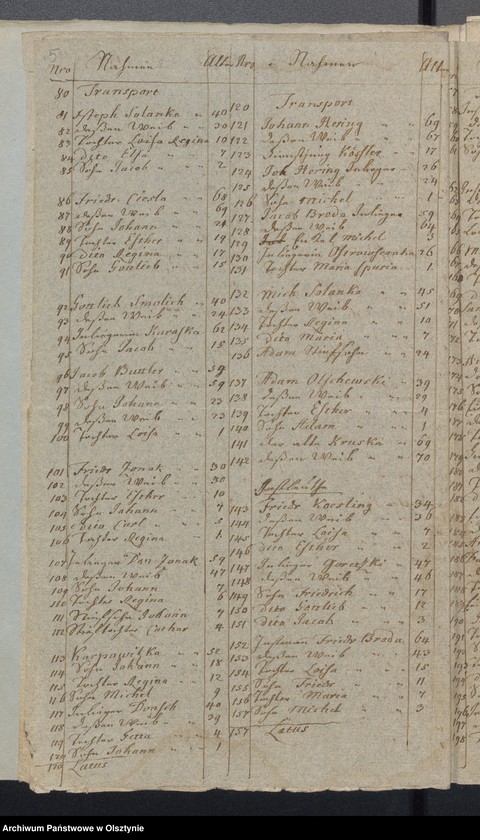 Nro Nahmen Alter
80 Transport
81 Joseph Salanka 40
82 deßen Weib 30
83 Tochter Loisa Regina 10
84 Dito Elsa 7
85 Sohn Jacob 2
86 Friedr. Ciesla 60
87 deßen Weib 60
88 Sohn Johann 21
89 Tochter Escher 19
90 Dito Regina 17
91 Sohn Gottlieb 15
92 Gottlieb Smolich 40
93 deßen Weib 24
94 Inliegerin Kuraska 62
95 Sohn Jacob 15
96 Jacob Buttler 59
97 deßen Weib 59
98 Sohn Johann 23
99 deßen Weib 23
100 Tochter Loisa 1
101 Friedr Jonak 30
102 deßen Weib 30
103 Tochter Escher 10
104 Sohn Johann 7
105 Dito Carl 5
106 Tochter Regina 1
107 Inlieger Dan Jonak 59
108 deßen Weib 47
109 Sohn Johann 7
110 Tochter Regina 6
111 Stiefsohn Johann 7
112 Stieftochter 4
113 Karpawitzka 52
114 Sohn Johann 18
115 Tochter Regina 12
116 Sohn Michel 9
117 Inlieger 40
118 deßen Weib 39
119 Tochter 4
120 Sohn Johann 1
120 Latus
Nro Nahmen Alter
120 Transport
121 Johann Hering 69
122 deßen Weib 67
123 17
124 Joh Hering Inlieger 26
125 deßen Weib 24
126 Sohn Michel 1
127 Jacob Broda Inlieger 59
128 deßen Weib 64
129 Michel 3
130 Inliegerin 26
131 Tochter Maria Spuria 1
132 Mich Salanka 45
133 deßen Weib 51
134 Tochter Regina 10
135 Dito Maria 7
136 Adam Stiefsohn 24
137 Adam Olschewski 39
138 deßen Weib 29
139 Tochter Escher 4
140 Sohn Adam 1
141 der alte Kruska 69
142 deßen Weib 70
Instleuthe
143 Friedr Koesling 34
144 deßen Weib 36
145 Tochter Loisa 7
146 Dito Escher 2
147 Inlieger 47
148 deßen Weib 46
149 Sohn Friedrich 17
150 Dito Gottlieb 12
151 Dito Jacob 3
152 Instmann Friedr Broda 64
153 deßen Weib 43
154 Tochter Loisa 15
155 Sohn Friedr 11
156 Tochter Maria 7
157 Sohn Michel 3
157 Latus
Archiwum Państwowe w Olsztynie